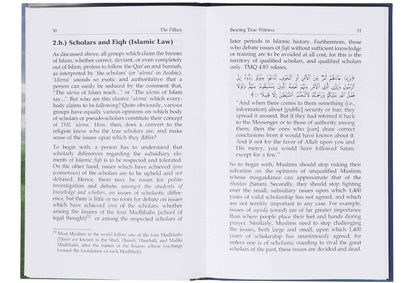 50 The Pillars
2.b.) Scholars and Fiqh (Islamic Law)
As discussed above, all groups which claim the banner
of Islam, whether correct, deviant, or even completely
out of Islam, profess to follow the Qur'an and Sunnah,
as interpreted by the 'scholars' (or 'ulema' in Arabic).
'Ulema' sounds so exotic and authoritative that a
person can easily be seduced by the comment that,
"The ulema of Islam teach..." or "The ulema of Islam
say..." But who are this elusive 'ulema' which every-
body claims to be following? Quite obviously, various
groups have equally various opinions on which body
of scholars or pseudo-scholars constitute their concept
of THE 'ulema.' How, then, does a convert to the
religion know who the true scholars are, and make
sense of the issues upon which they differ?
To begin with, a person has to understand that
scholarly differences regarding the subsidiary ele-
ments of Islamic fiqh is to be respected and tolerated.
On the other hand, issues which have achieved ijma
(consensus) of the scholars are to be upheld and not
debated. Hence, there may be room for polite
investigation and debate, amongst the students of
knowledge and scholars, on issues of scholarly differ-
ence, but there is little or no room for debate on issues
which have achieved ijma of the scholars, whether
among the Imams of the four Madhhabs (school of
legal thought) or among the respected scholars of
Most Muslims in the world follow one of the four Madhhabs
(These are known as the Shafi, Hanafi, Hanbali, and Maliki
Madhhabs, after the names of the Imams whose teachings
formed the foundation of each Madhhab).
Bearing True Witness 51
later periods in Islamic history. Furthermore, those
who debate issues of fiqh without sufficient knowledge
or training are to be avoided at all costs, for this is the
territory of qualified scholars, and qualified scholars
only. TMQ 4:83 relates,
"And when there comes to them something (i.e.,
information) about [public] security or fear, they
spread it around. But if they had referred it back
to the Messenger or to those of authority among
them, then the ones who [can] draw correct
conclusions from it would have known about it.
And if not for the favor of Allah upon you and
His mercy, you would have followed Satan,
except for a few."
To begin with, Muslims should stop risking their
salvation on the opinions of unqualified Muslims
whose misguidance can approximate that of the
Shaitan (Satan). Secondly, they should stop fighting
over the small, subsidiary issues upon which 1,400
years of valid scholarship has not agreed, and which
are not terribly important in any case. For example,
issues of aqeeda (creed) are of far greater importance
than where people place their feet and hands during
prayer. Similarly, Muslims need to stop challenging
the issues, both large and small, upon which 1,400
years of scholarship has unanimously agreed, for
unless one is of scholastic standing to rival the great
scholars of the past, these issues are decided and dead.